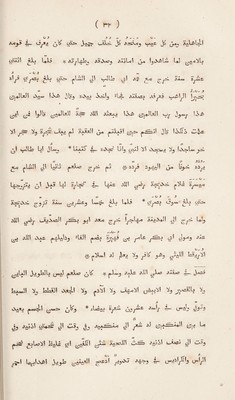 ( ٣٠ )
الجاهلية ومن كل عيب ومنحه كل خلق جميل حتى كان يعرف في قومه
بالامين لما شاهدوا من امانته وصدقه وطهارته * فلما بلغ اثنتي
عشرة سنة خرج مع عمه ابي طالب الى الشام حتى بلغ بصرى فرآه
بحيرا الراهب فعرفه بصفته فجاء واخذ بيده وقال هذا سيد العالمين
هذا رسول رب العالمين هذا يبعثه الله حجة للعالمين قالوا فمن اين
علمت ذلك قال انكم حين اقبلتم من العقبة لم يبق شجرة ولا حجر الا
خر ساجدا ولا يسجد الا لنبي وانا نجده في كتبنا * وسأل ابا طالب ان
يرده خوفا من اليهود فرده * ثم خرج صلعم ثانيا الى الشام مع
ميسرة غلام خديجة رضي الله عنها في تجارة لها قبل ان يتزوجها
حتى بلغ سوق بصرى * فلما بلغ خمسا وعشرين سنة تزوج خديجة
ولما خرج الى المدينة مهاجرا خرج معه ابو بكر الصديق رضي الله
عنه ومولى ابي بكر عامر بن فهيرة بضم الفاء ودليلهم عبد الله بن
الاريقط الليثي وهو كافر ولا يعلم له اسلام *
فصل في صفته صلى الله عليه وسلم * كان صلعم ليس بالطويل البائن
ولا بالقصير ولا الابيض الامهق ولا الآدم ولا الجعد القطط ولا السبط
وتوفي وليس في رأسه عشرون شعرة بيضاء * وكان حسن الجسم بعيد
ما بين المنكبين له شعر الى منكبيه وفي وقت الى شحمتي اذنيه وفي
وقت الى نصف اذنيه كث اللحية شثن الكفين اي غليظ الاصابع ضخم
الرأس والكراديس في وجهه تدوير ادعج العينين طويل اهدابهما احمر